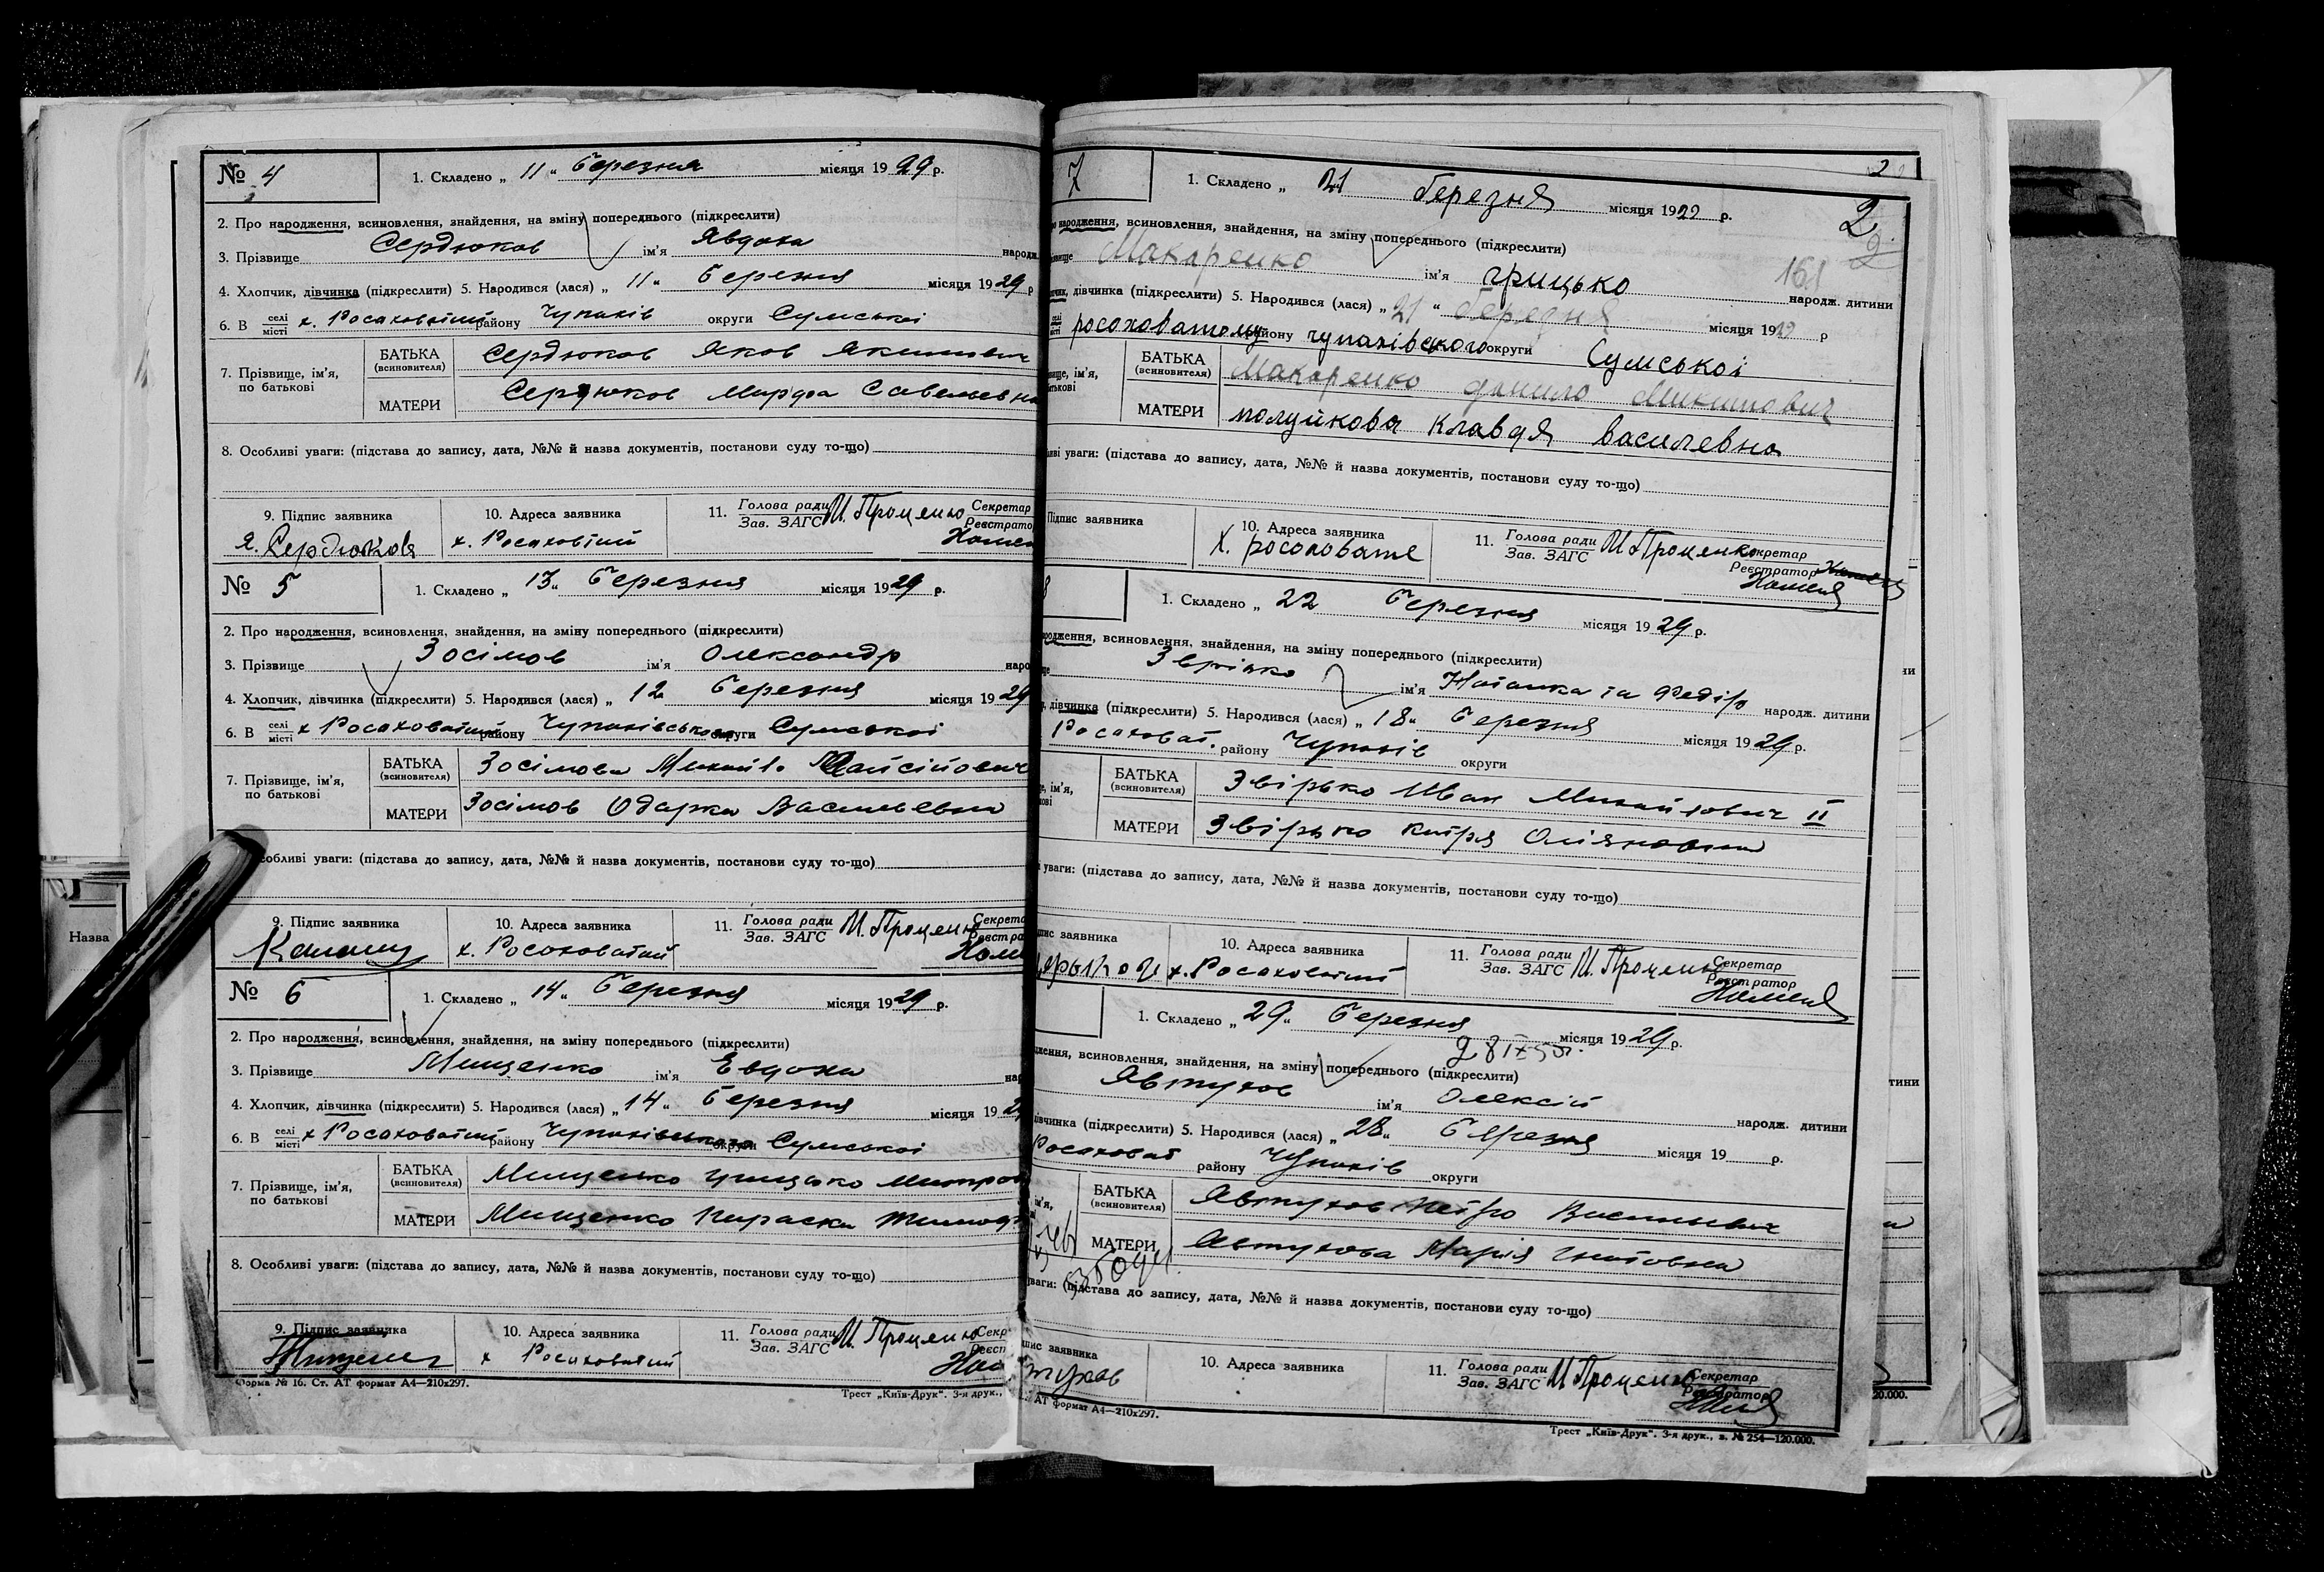 № 4
1. Складено „ 11 “ Березня місяця 1929 р.
2. Про народження, всиновлення, знайдення, на зміну попереднього (підкреслити)
3. Прізвище Сердюков ім’я Явдоха народж.
4. Хлопчик, дівчинка (підкреслити) 5. Народився (лася) „ 11 “ Березня місяця 1929 р
6. В селі місті х. Росоховатий району Чупахів округи Сумської
7. Прізвище, ім’я, по батькові
БАТЬКА (всиновителя) Сердюков Яков Якимович
МАТЕРИ Сердюков Марфа Савельевна
8. Особливі уваги: (підстава до запису, дата, №№ й назва документів, постанови суду то-що)
9. Підпис заявника 10. Адреса заявника 11. Голова ради Зав. ЗАГС И. Проценко Секретар Реєстратор
Я. Сердюков х. Росоховатий
№ 5
1. Складено „ 13 “ Березня місяця 1929 р.
2. Про народження, всиновлення, знайдення, на зміну попереднього (підкреслити)
3. Прізвище Зосімов ім’я Олександр наро
4. Хлопчик, дівчинка (підкреслити) 5. Народився (лася) „ 12 Березня місяця 1929
6. В селі місті х Росоховатий району Чупахівського округи Сумської
7. Прізвище, ім’я, по батькові
БАТЬКА (всиновителя) Зосімов Михайло
МАТЕРИ Зосімов Одарка Васильевна
собливі уваги: (підстава до запису, дата, №№ й назва документів, постанови суду то-що)
9. Підпис заявника 10. Адреса заявника 11. Голова ради Зав. ЗАГС И. Проценко Секрета Реєстра
х. Росоховатий
№ 6
1. Складено „ 14 “ Березня місяця 1929 р.
2. Про народження, всиновлення, знайдення, на зміну попереднього (підкреслити)
3. Прізвище Мищенко ім’я Евдоха нар
4. Хлопчик, дівчинка (підкреслити) 5. Народився (лася) „ 14 “ Березня місяця 192
6. В селі місті х Росоховатий району Чупахівського округи Сумської
7. Прізвище, ім’я, по батькові
БАТЬКА (всиновителя) Мищенко Грицько Митроф
МАТЕРИ Мищенко Параска Тимоф
8. Особливі уваги: (підстава до запису, дата, №№ й назва документів, постанови суду то-що)
9. Підпис заявника 10. Адреса заявника 11. Голова ради Зав. ЗАГС И. Проценко Секр Реєст
х Росоховатий
Форма № 16. Ст. АТ формат А4—210х297.
Трест „Київ-Друк“. 3-я друк.,
Назва
7
1. Складено „ 21 Березня місяця 1929 р.
2
2.
о народження, всиновлення, знайдення, на зміну попереднього (підкреслити)
161
звище Макаренко ім’я Грицько народж. дитини
пчик, дівчинка (підкреслити) 5. Народився (лася) „ 21 “ березня місяця 1929 р
селі місті росоховатому району чупахівського округи Сумської
звище, ім’я, батькові
БАТЬКА (всиновителя) Макаренко данило Микитович
МАТЕРИ полуйкова Клавдя василевна
ливі уваги: (підстава до запису, дата, №№ й назва документів, постанови суду то-що)
Підпис заявника 10. Адреса заявника 11. Голова ради Зав. ЗАГС И Проценко Секретар Реєстратор
х. росоховате
8
1. Складено „ 22 Березня місяця 1929 р.
народження, всиновлення, знайдення, на зміну попереднього (підкреслити)
Звірько ім’я Наталка та Федір народж. дитини
дівчинка (підкреслити) 5. Народився (лася) „ 18 “ Березня місяця 1929 р.
Росоховат. району Чупахів округи
ім’я,
БАТЬКА (всиновителя) Звірько Иван Михайлович II
МАТЕРИ Звірько
уваги: (підстава до запису, дата, №№ й назва документів, постанови суду то-що)
пис заявника 10. Адреса заявника 11. Голова ради Зав. ЗАГС И. Проценко Секретар Реєстратор
х. Росоховатий
1. Складено „ 29 “ Березня місяця 1929 р.
дження, всиновлення, знайдення, на зміну попереднього (підкреслити)
Явтухов ім’я Олексій народж. дитини
дівчинка (підкреслити) 5. Народився (лася) „ 28 “ Березня місяця 19 р.
Росоховат району Чупахів округи
ім’я,
БАТЬКА (всиновителя) Явтухов Петро Васильевич
МАТЕРИ Явтухова Марія
уваги: (підстава до запису, дата, №№ й назва документів, постанови суду то-що)
пис заявника 10. Адреса заявника 11. Голова ради Зав. ЗАГС И Проценко Секретар Реєстратор
тухов
АТ формат А4—210х297.
Трест „Київ-Друк“. 3-я друк., з. № 254—120.000.
20.000.